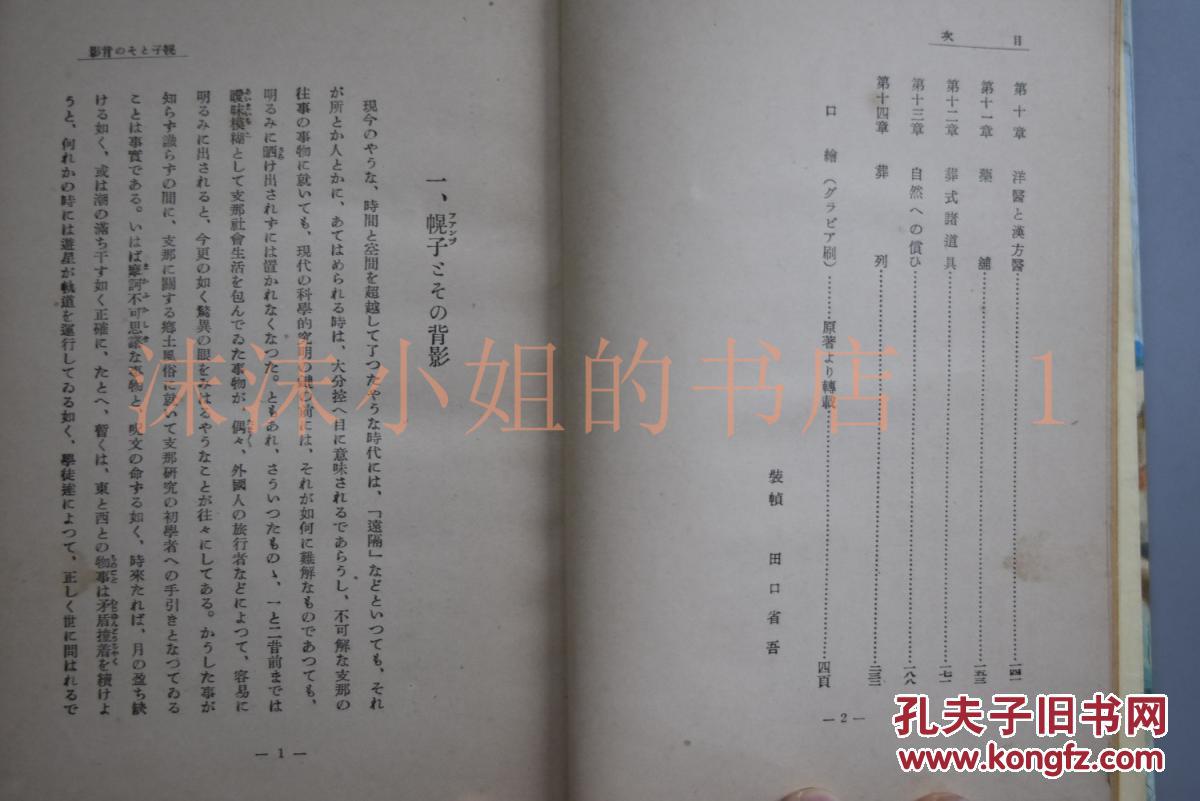 目次
第十章 洋醫と漢方醫……一四一
第十一章 藥舖……一五三
第十二章 葬式諸道具……一七一
第十三章 自然への償ひ……一八八
第十四章 葬列……二三三
口繪（グラビア刷）……原著より轉載……四頁
裝幀 田口省吾
— 2 —
幌子とその背影
一、幌子とその背影
フアンヅ
現今のやうな、時間と空間を超越して了つたやうな時代には、「遠隔」などといつても、それ
が所とか人とかに、あてはめられる時は、大分控へ目に意味されるであらうし、不可解な支那の
往事の事物に就いても、現代の科學的究明の鏡の前には、それが如何に難解なものであつても、
明るみに晒け出されずには置かれなくなつた。ともあれ、さういつたものゝ、一と二昔前までは
曖昧模糊として支那社會生活を包んでゐた事物が、偶々、外國人の旅行者などによつて、容易に
明るみに出されると、今更の如く驚異の眼をみはるやうなことが往々にしてある。かうした事が
知らず識らずの間に、支那に關する鄕土風俗に就いて支那研究の初學者への手引きとなつてゐる
ことは事實である。いはば摩訶不可思議な事物と、呪文の命ずる如く、時來たれば、月の盈ち缺
ける如く、或は潮の滿ち干す如く正確に、たとへ、暫くは、東と西との物事は矛盾撞着を續けよ
うと、何れかの時には遊星が軌道を運行してゐる如く、學徒達によつて、正しく世に問はれるで
— 1 —
沫沫小姐的书店 1
孔夫子旧书网
www.kongfz.com